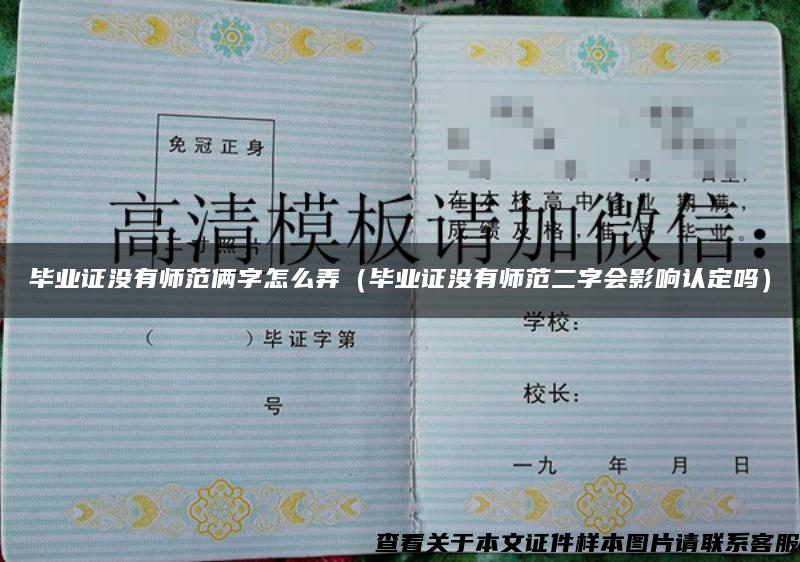 免冠正身
二寸照片
(　　)毕证字第
号
在本校高中修业期满,
成绩及格,准予毕业。
学校:
校长:
一九　年　月　日
高清模板请加微信:
毕业证没有师范俩字怎么弄（毕业证没有师范二字会影响认定吗）
查看关于本文证件样本图片请联系客服